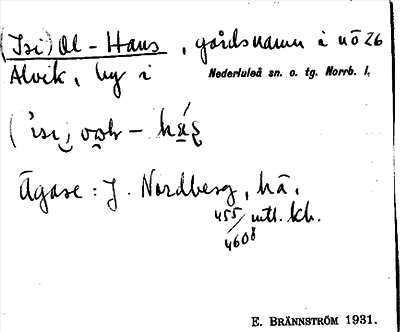 (Isi) Ol-Hans, gårdsnamn i nö 26
Alvik, by i Nederluleå sn. o. tg. Norrb. l.
Ägare: J. Nordberg, hä.
455/ mtl. kb.
4608
E. BRÄNNSTRÖM 1931.